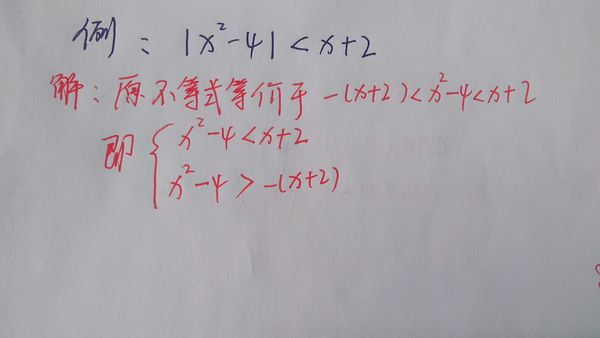 例：|x²-4|<x+2
解：原不等式等价于 -(x+2)<x²-4<x+2
即 { x²-4<x+2
x²-4>-(x+2)